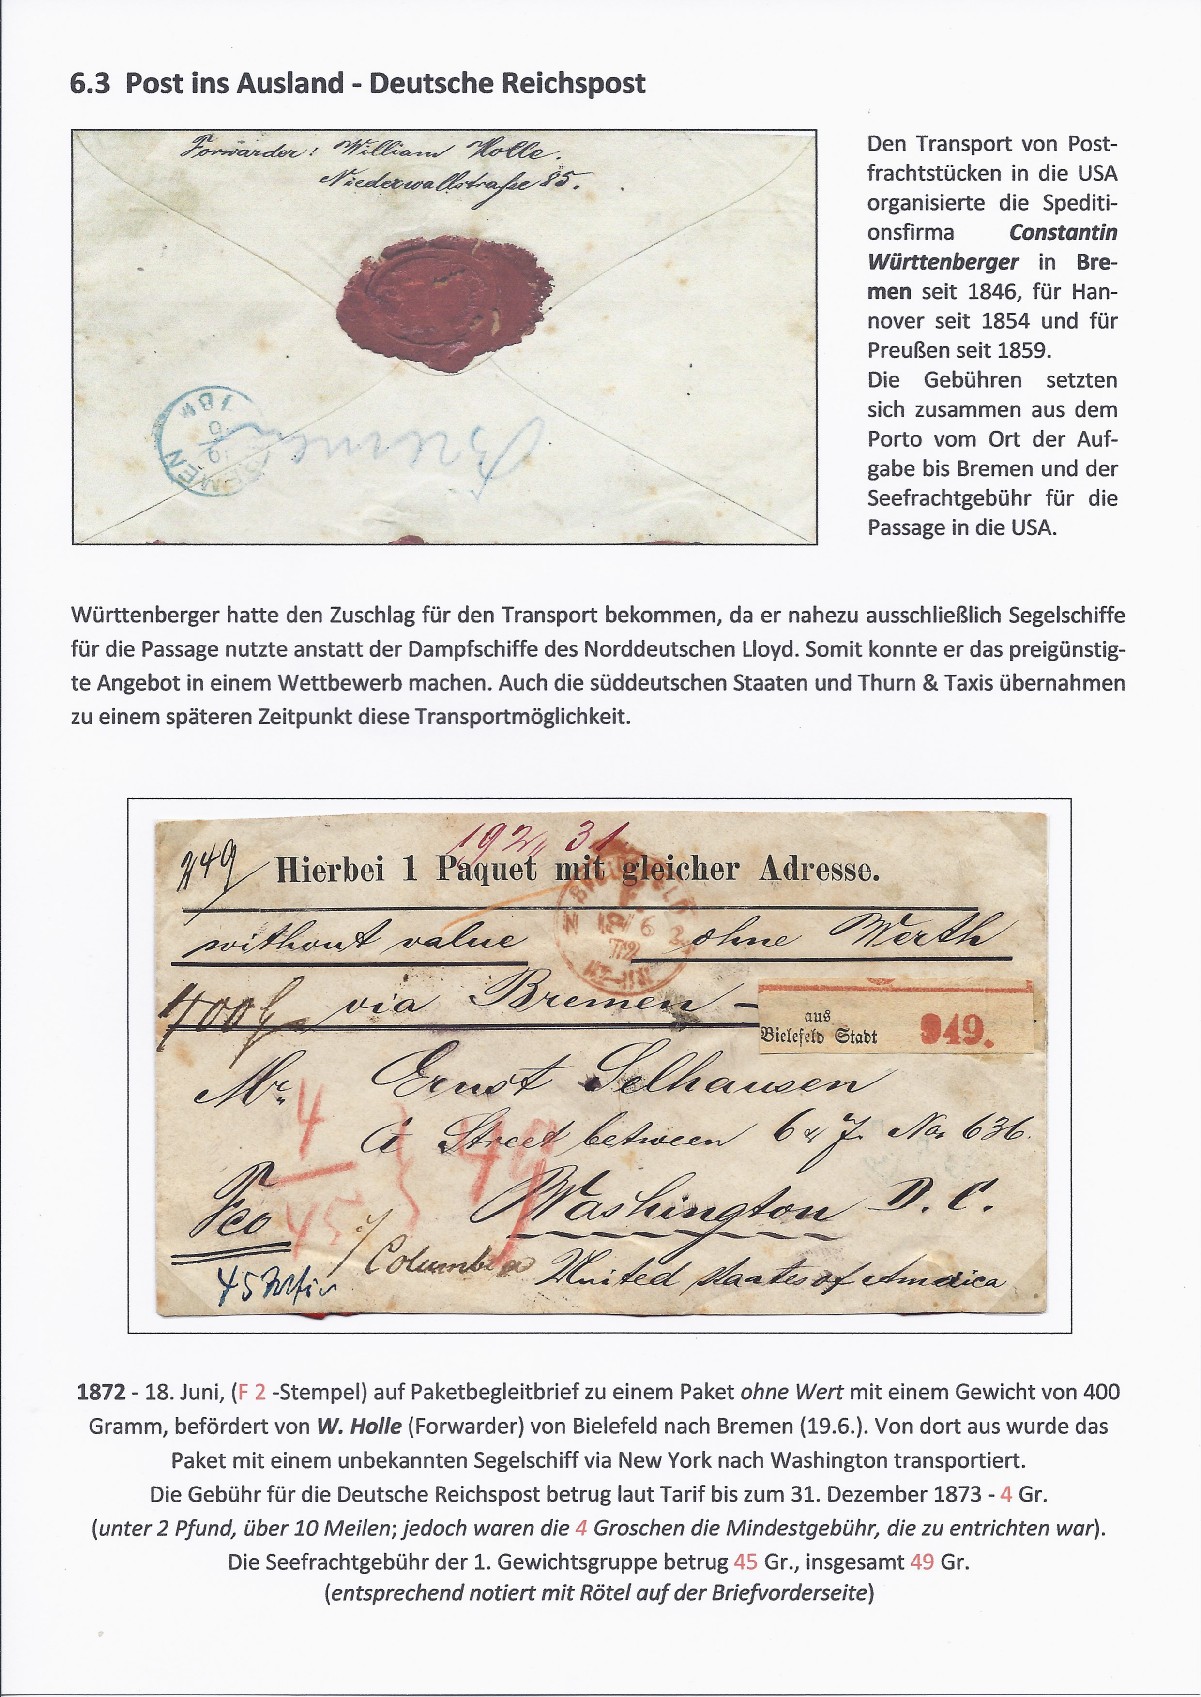 6.3 Post ins Ausland - Deutsche Reichspost
Forwärder: William Holle.
Niederwallstraße 85.
BREMEN
Bremen
Den Transport von Post-
frachtstücken in die USA
organisierte die Spediti-
onsfirma Constantin
Württenberger in Bre-
men seit 1846, für Han-
nover seit 1854 und für
Preußen seit 1859.
Die Gebühren setzten
sich zusammen aus dem
Porto vom Ort der Auf-
gabe bis Bremen und der
Seefrachtgebühr für die
Passage in die USA.
Württenberger hatte den Zuschlag für den Transport bekommen, da er nahezu ausschließlich Segelschiffe
für die Passage nutzte anstatt der Dampfschiffe des Norddeutschen Lloyd. Somit konnte er das preigünstig-
te Angebot in einem Wettbewerb machen. Auch die süddeutschen Staaten und Thurn & Taxis übernahmen
zu einem späteren Zeitpunkt diese Transportmöglichkeit.
192,, 31
Hierbei 1 Paquet mit gleicher Adresse.
BIELEFELD
without value ohne Werth
400 g via Bremen -
aus
Bielefeld Stadt 949.
Mr. Ernst Selhausen
4 A Street between 6 & 7. No. 636.
49
Fco 45 Washington D. C.
Columbia United Staates of America
45
1872 - 18. Juni, (F 2 -Stempel) auf Paketbegleitbrief zu einem Paket ohne Wert mit einem Gewicht von 400
Gramm, befördert von W. Holle (Forwarder) von Bielefeld nach Bremen (19.6.). Von dort aus wurde das
Paket mit einem unbekannten Segelschiff via New York nach Washington transportiert.
Die Gebühr für die Deutsche Reichspost betrug laut Tarif bis zum 31. Dezember 1873 - 4 Gr.
(unter 2 Pfund, über 10 Meilen; jedoch waren die 4 Groschen die Mindestgebühr, die zu entrichten war).
Die Seefrachtgebühr der 1. Gewichtsgruppe betrug 45 Gr., insgesamt 49 Gr.
(entsprechend notiert mit Rötel auf der Briefvorderseite)